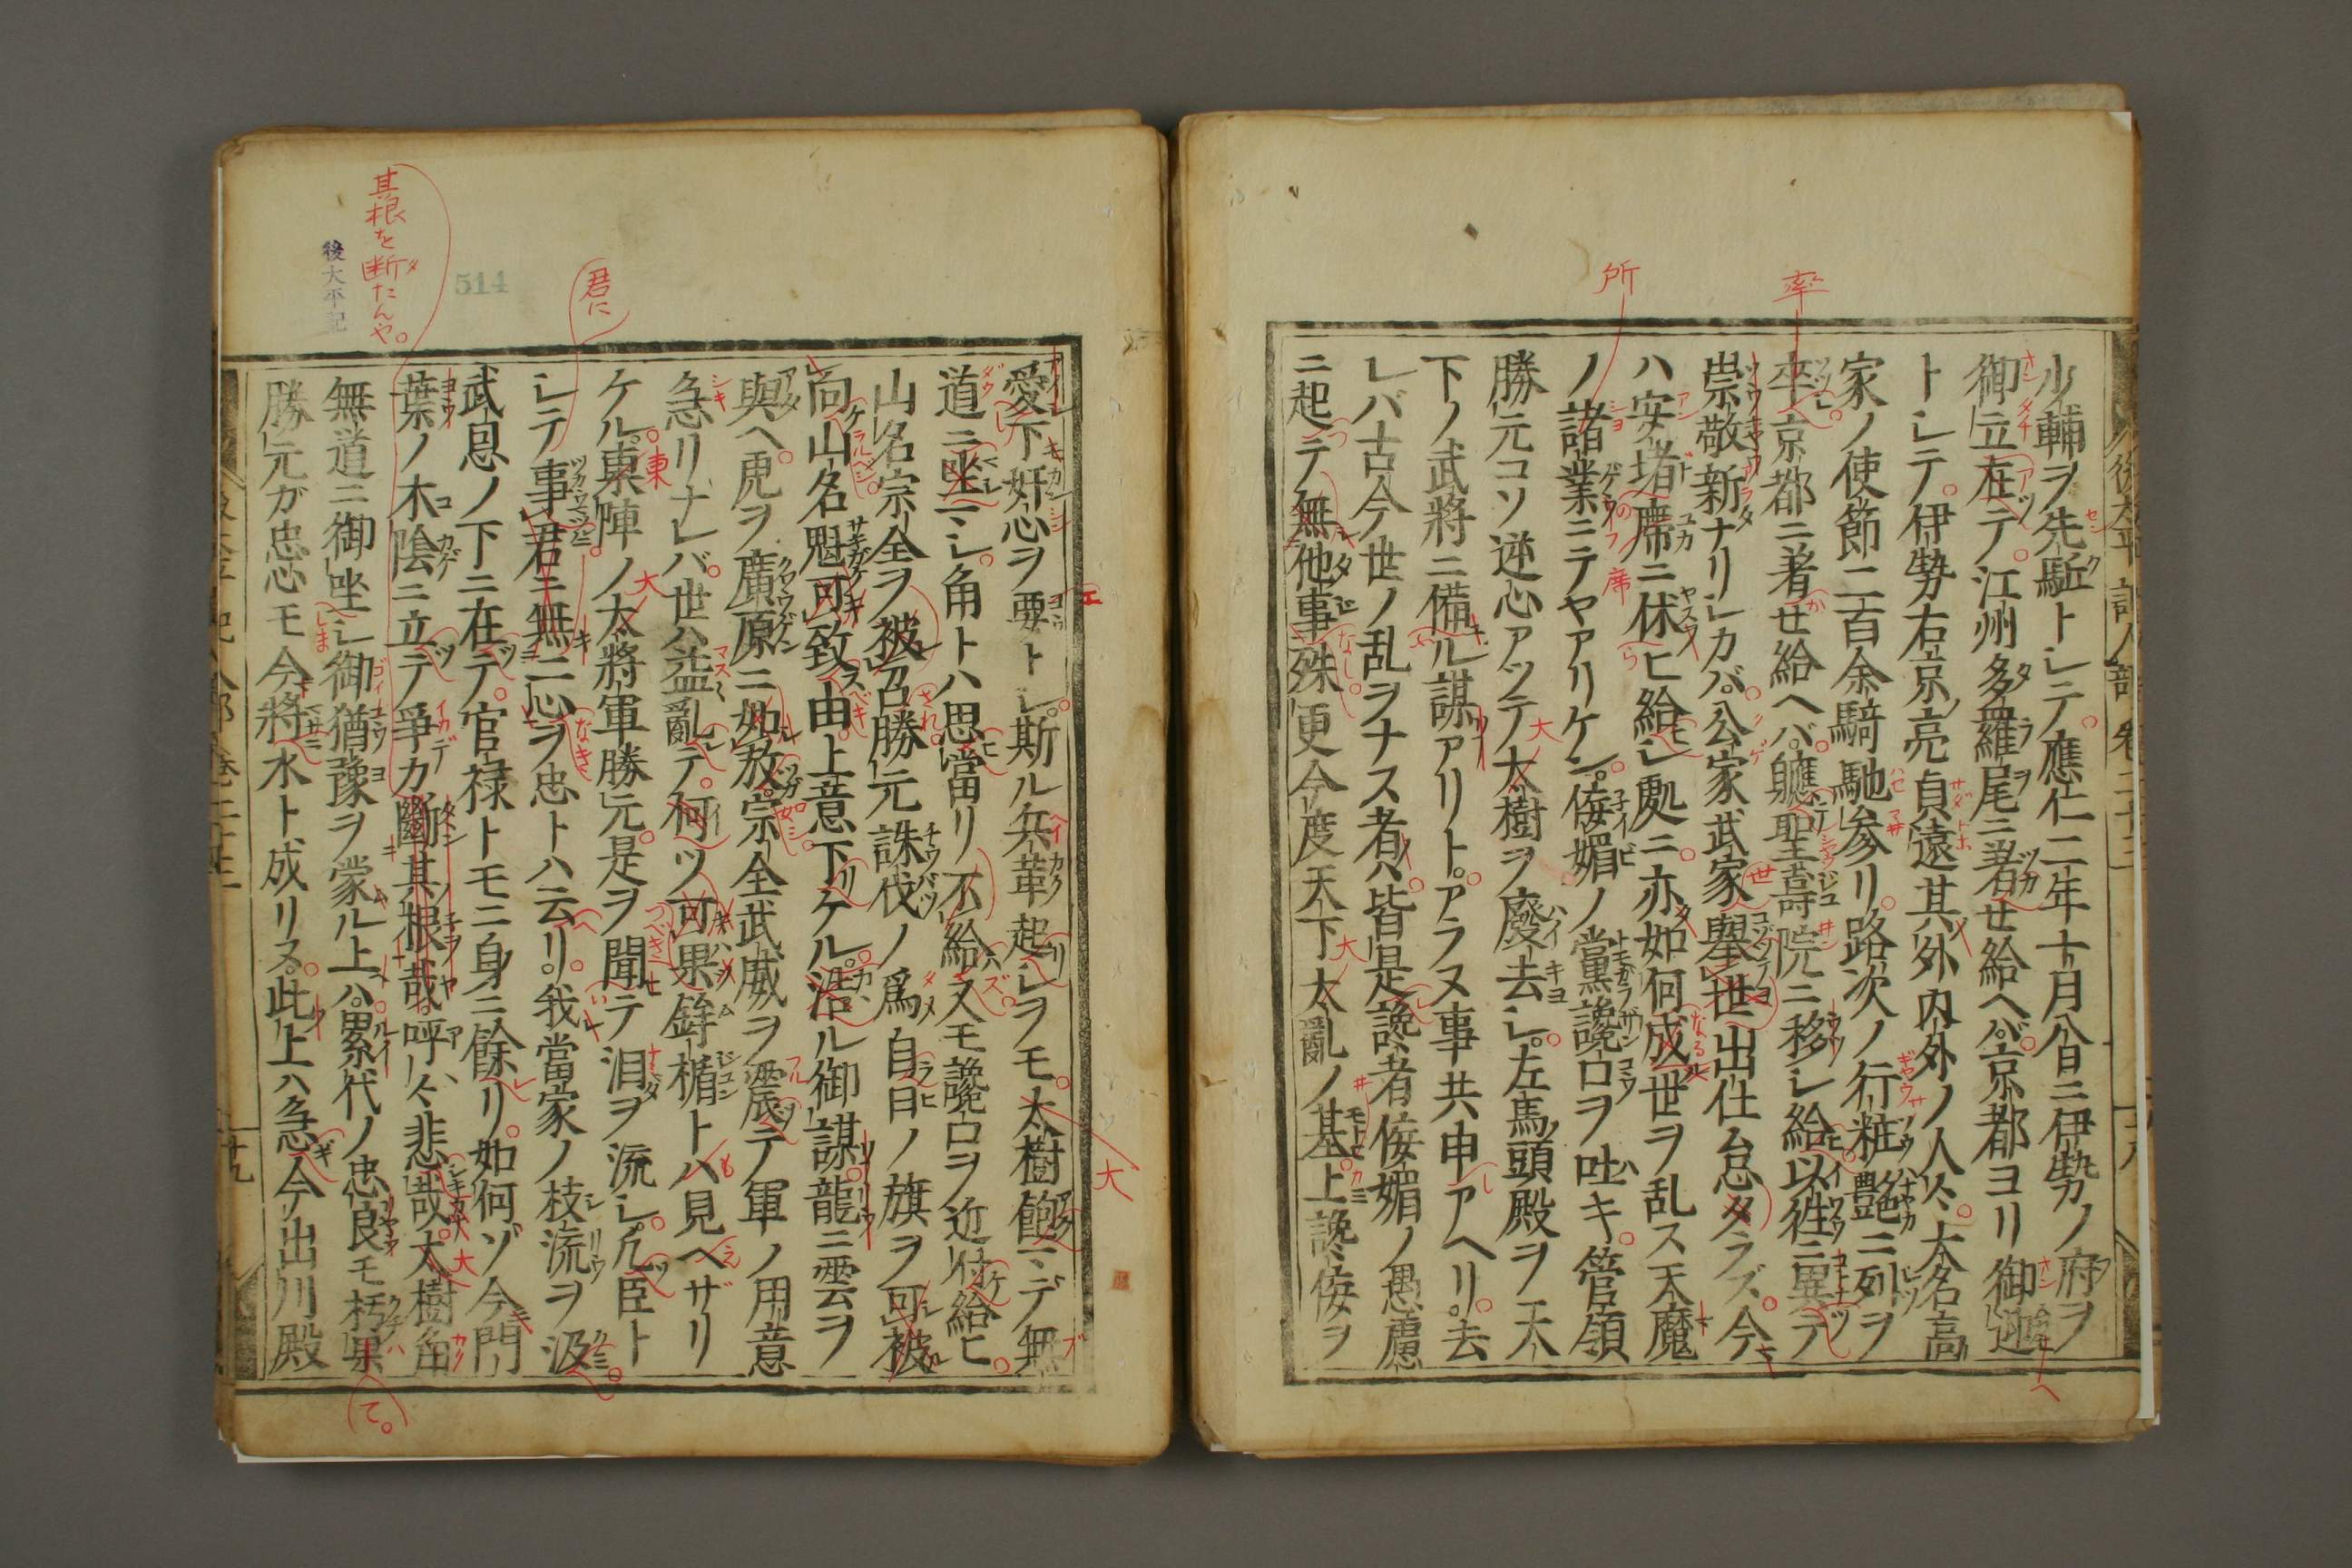 少輔ヲ先駈トシテ應仁二年十月八日ニ伊勢ノ府ヲ
御立在テ江州多羅尾ニ著セ給ヘバ京都ヨリ御迎
トシテ伊勢右京亮貞遠其外内外ノ人々大名高
家ノ使節二百余騎馳参リ路次ノ行粧艶ニ列ヲ
卒京都ニ著セ給ヘバ軈聖壽院ニ移シ給以徃ニ異テ
崇敬新ナリシカバ公家武家擧世出仕怠タラズ今
ハ安堵席ニ休ヒ給シ処ニ亦如何成世ヲ乱ス天魔
ノ諸業ニテヤアリケン侫媚ノ黨讒口ヲ吐キ管領
勝元コソ逆心アツテ大樹ヲ廢去シ左馬頭殿ヲ天
下ノ武將ニ備ル謀アリトアラヌ事共申アヘリ去
レバ古今世ノ乱ヲナス者ハ皆是讒者侫媚ノ愚慮
ニ起テ無他事殊更今度天下大亂ノ基上讒侫ヲ
所
率
愛下奸心ヲ要トシ斯ル兵革起シヲモ太樹飽マデ無
道ニ坐マシ角トハ思當リ不給又モ讒口ヲ近付給ヒ
山名宗全ヲ被召勝元誅伐ノ爲自日ノ旗ヲ可被
向山名魁可致由上意下ケル浩ル御謀龍ニ雲ヲ
與ヘ虎ヲ廣原ニ如放宗全武威ヲ震テ軍ノ用意
急リナレバ世ハ益亂テ何ツ可果鉾楯トハ見ヘザリ
ケル東陣ノ太將軍勝元是ヲ聞テ泪ヲ流シ凡臣ト
シテ事君ニ無二心ヲ忠トハ云リ我當家ノ枝流ヲ汲
武恩ノ下ニ在テ官禄トモニ身ニ餘リ如何ゾ今門
葉ノ木陰ニ立テ爭カ斷其根哉呼々悲哉太樹角
無道ニ御坐シ御猶豫ヲ蒙ル上ハ累代ノ忠良モ朽果
勝元ガ忠心モ今將水ト成リヌ此上ハ急今出川殿
君に
其根を断たんや。
後太平記
514